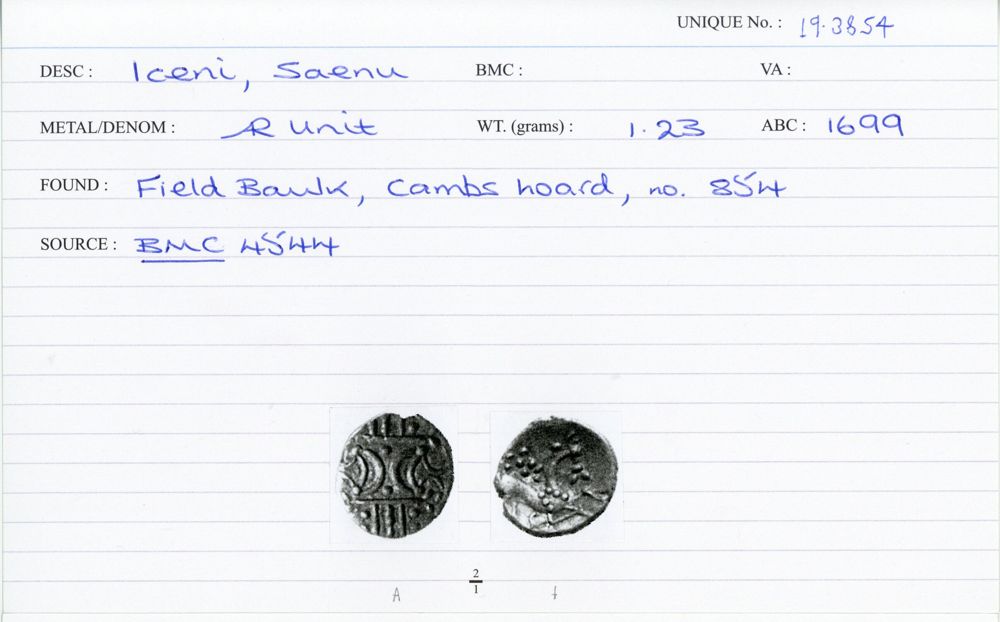 UNIQUE No. : 19.3854
DESC : Iceni, Saenu BMC : VA :
METAL/DENOM : AR Unit WT. (grams) : 1.23 ABC : 1699
FOUND : Field Baulk, Cambs hoard, no. 854
SOURCE : BMC 4544
2
1
A f